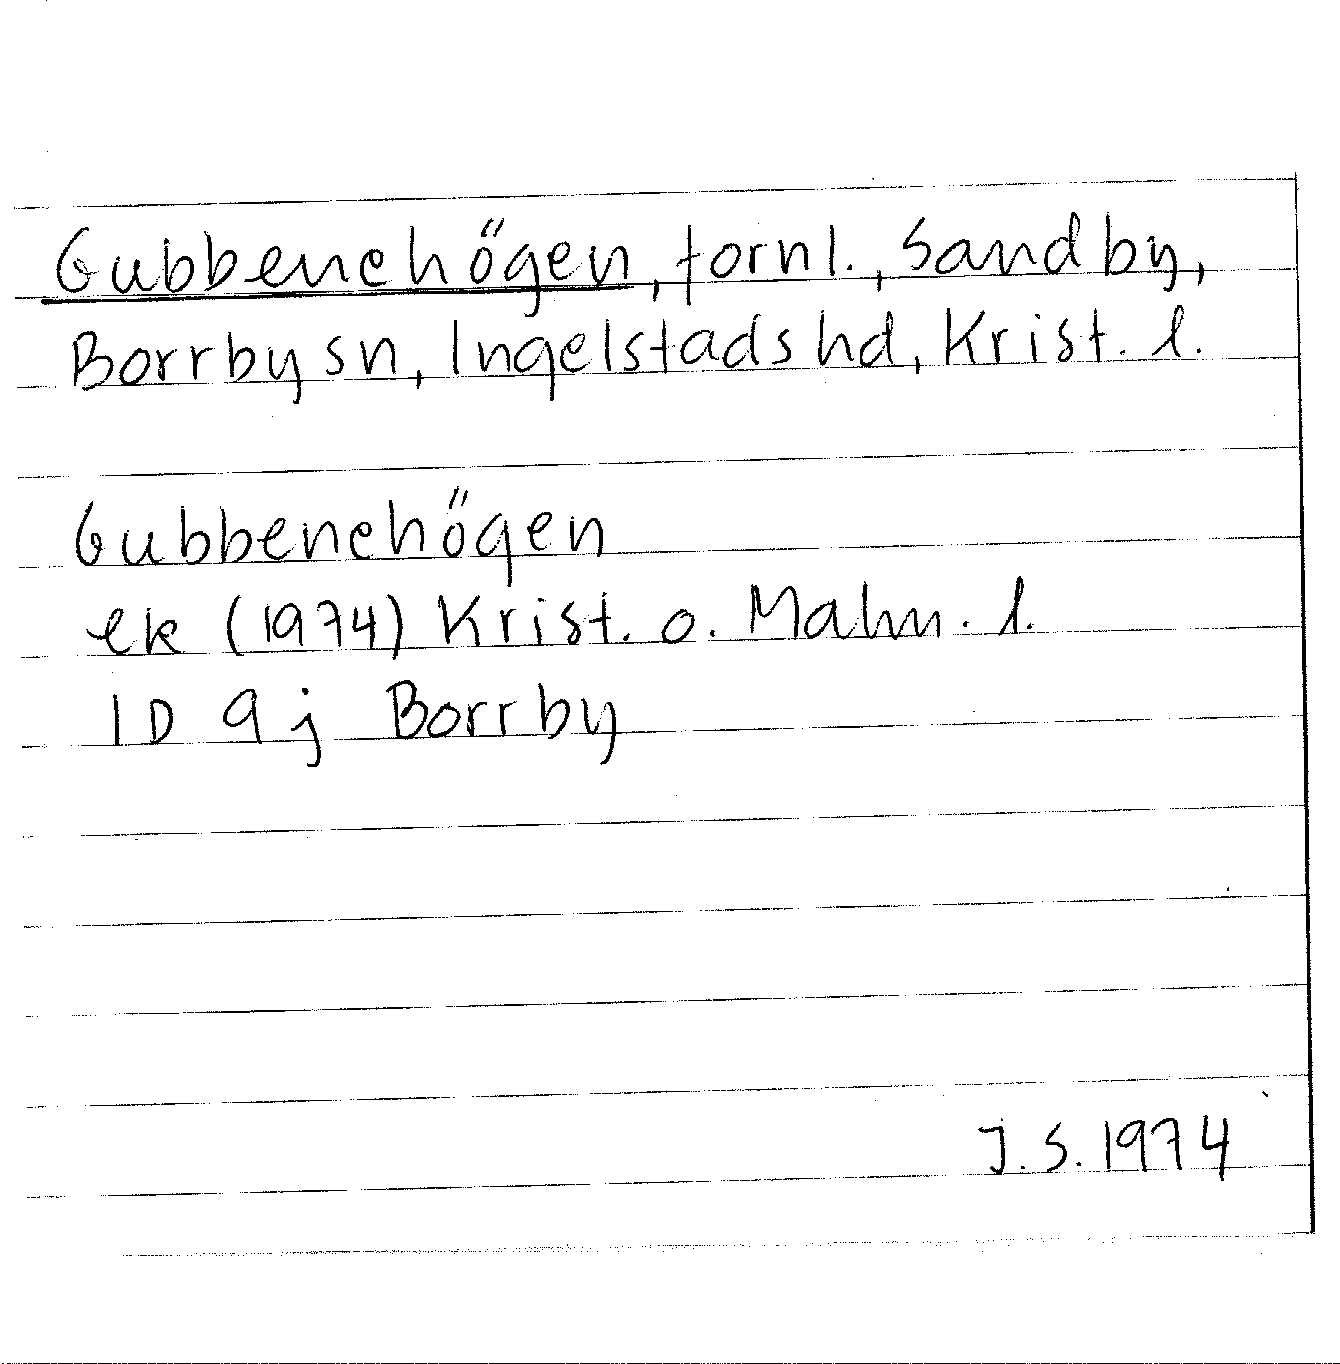 Gubbenehögen, fornl., Sandby,
Borrby sn, Ingelstads hd, Krist. l.
Gubbenehögen
ek (1974) Krist. o. Malm. l.
1D 9j Borrby
J.S. 1974